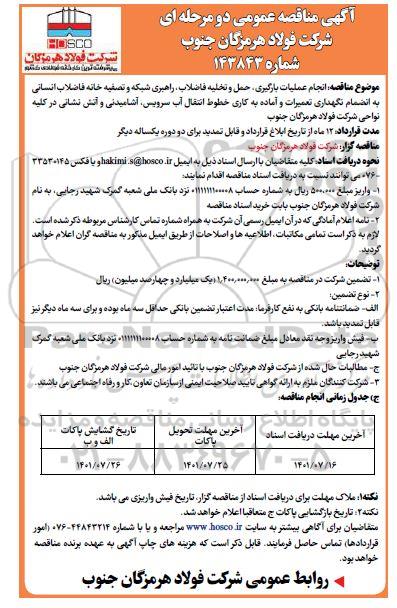 آگهی مناقصه عمومی دو مرحله ای
شرکت فولاد هرمزگان جنوب
شماره ۱۴۳۸۴۳
HOSCO
شرکت فولاد هرمزگان
موضوع مناقصه: انجام عملیات بارگیری، حمل و تخلیه فاضلاب، راهبری شبکه و تصفیه خانه فاضلاب انسانی
به انضمام نگهداری تعمیرات و آماده به کاری خطوط انتقال آب سرویس، آشامیدنی و آتش نشانی در کلیه
نواحی شرکت فولاد هرمزگان جنوب
مدت قرارداد: ۱۲ ماه از تاریخ ابلاغ قرارداد و قابل تمدید برای دو دوره یکساله دیگر
مناقصه گزار: شرکت فولاد هرمزگان جنوب
نحوه دریافت اسناد: کلیه متقاضیان با ارسال اسناد ذیل به ایمیل hakimi.s@hosco.ir و یا فکس ۳۳۵۳۰۱۴۵
-۰۷۶ می توانند نسبت به دریافت اسناد مناقصه اقدام نمایند:
۱- واریز مبلغ ۵۰۰.۰۰۰ ریال به شماره حساب ۰۱۱۱۱۱۱۱۰۰۰۰۸ نزد بانک ملی شعبه گمرک شهید رجایی، به نام
شرکت فولاد هرمزگان جنوب بابت خرید اسناد مناقصه
۲- نامه اعلام آمادگی که در آن ایمیل رسمی آن شرکت به همراه شماره تماس کارشناس مربوطه ذکر شده است.
لازم به ذکر است تمامی مکاتبات، اطلاعیه ها و اصلاحات از طریق ایمیل مذکور به مناقصه گران اعلام خواهد
گردید.
توضیحات:
۱- تضمین شرکت در مناقصه به مبلغ ۱,۴۰۰,۰۰۰,۰۰۰ (یک میلیارد و چهارصد میلیون) ریال
۲- نوع تضمین:
الف- ضمانتنامه بانکی به نفع کارفرما: مدت اعتبار تضمین بانکی حداقل سه ماه بوده و برای سه ماه دیگر نیز
قابل تمدید باشد.
ب- فیش واریز وجه نقد معادل مبلغ ضمانت نامه به شماره حساب ۰۱۱۱۱۱۱۱۰۰۰۰۸ نزد بانک ملی شعبه گمرک
شهید رجایی
ج- مطالبات حال شده از شرکت فولاد هرمزگان جنوب با تائید امور مالی شرکت فولاد هرمزگان جنوب
۳- شرکت کنندگان ملزم به ارائه گواهی تایید صلاحیت ایمنی از سازمان تعاون کار و رفاه اجتماعی می باشند.
ج) جدول زمانی انجام مناقصه:
آخرین مهلت دریافت اسناد | آخرین مهلت تحویل پاکات | تاریخ گشایش پاکات الف و ب
۱۴۰۱/۰۷/۱۶ | ۱۴۰۱/۰۷/۲۵ | ۱۴۰۱/۰۷/۲۶
نکته۱: ملاک مهلت برای دریافت اسناد از مناقصه گزار، تاریخ فیش واریزی می باشد.
نکته۲: تاریخ بازگشایی پاکات ج متعاقبا اعلام خواهد شد.
متقاضیان برای آگاهی بیشتر به سایت www.hosco.ir مراجعه و یا با شماره ۴۴۸۴۳۲۱۴-۰۷۶ (امور
قراردادها) تماس حاصل فرمایند. قابل ذکر است که هزینه های چاپ آگهی به عهده برنده مناقصه
خواهد بود.
روابط عمومی شرکت فولاد هرمزگان جنوب